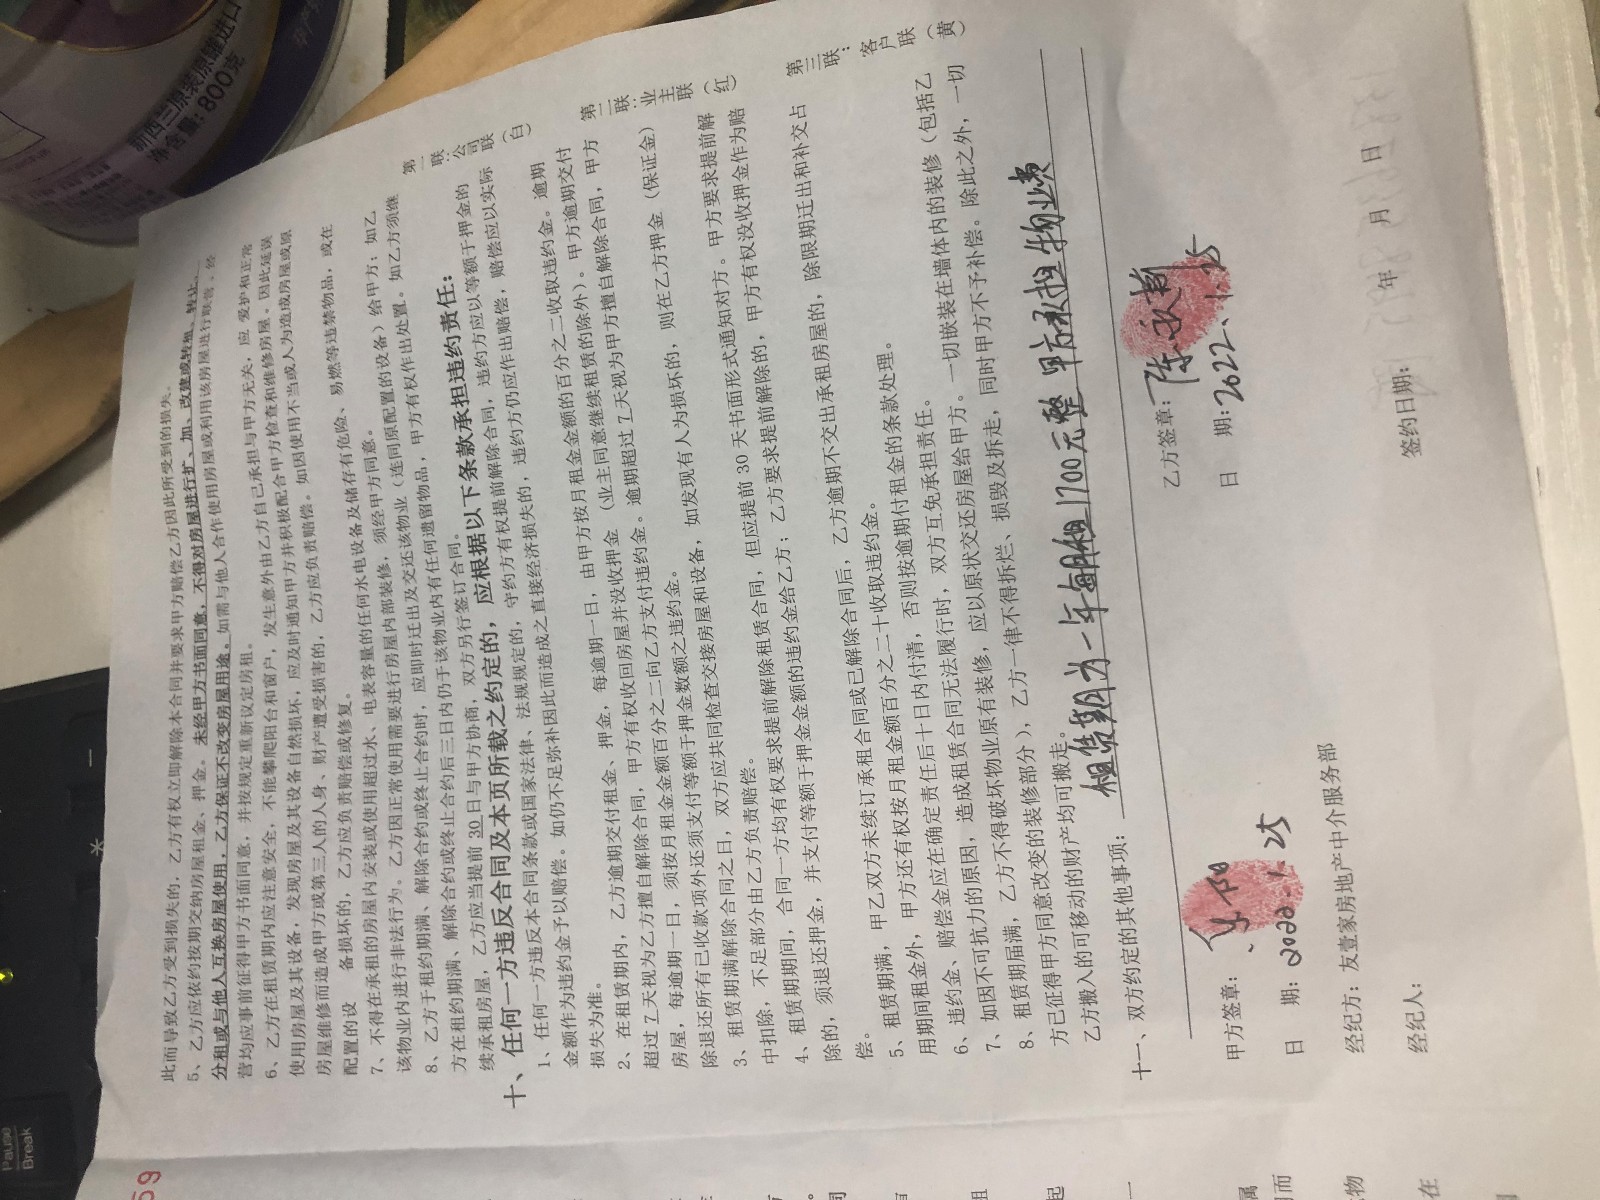 此而导致乙方受到损失的，乙方有权立即解除本合同并要求甲方赔偿乙方因此所受到的损失。
5、乙方应依约按期交纳房屋租金、押金。未经甲方书面同意，不得对房屋进行扩、加、改建或转租、转让、
分租或与他人互换房屋使用，乙方保证不改变房屋用途。如需与他人合作使用房屋或利用该房屋进行联营、经
营均应事前征得甲方书面同意，并按规定重新议定房租。
6、乙方在租赁期内应注意安全，不能攀爬阳台和窗户，发生意外由乙方自己承担与甲方无关，应 爱护和正常
使用房屋及其设备，发现房屋及其设备自然损坏，应及时通知甲方并积极配合甲方检查和维修房屋。因此延误
房屋维修而造成甲方或第三人的人身、财产遭受损害的，乙方应负责赔偿。如因使用不当或人为造成房屋或原
配置的设 备损坏的，乙方应负责赔偿或修复。
7、不得在承租的房屋内安装或使用超过水、电表容量的任何水电设备及储存有危险、易燃等违禁物品，或在
该物业内进行非法行为。乙方因正常使用需要进行房屋内部装修，须经甲方同意。
8、乙方于租约期满、解除合约或终止合约时，应即时迁出及交还该物业（连同原配置的设备）给甲方；如乙
方在租约期满、解除合约或终止合约后三日内仍于该物业内有任何遗留物品，甲方有权作出处置。如乙方须继
续承租房屋，乙方应当提前 30 日与甲方协商，双方另行签订合同。
十、任何一方违反合同及本页所载之约定的，应根据以下条款承担违约责任：
1、任何一方违反本合同条款或国家法律、法规规定的，守约方有权提前解除合同，违约方应以等额于押金的
金额作为违约金予以赔偿。如仍不足弥补因此而造成之直接经济损失的，违约方仍应作出赔偿，赔偿应以实际
损失为准。
2、在租赁期内，乙方逾期交付租金、押金，每逾期一日，由甲方按月租金金额的百分之二收取违约金。逾期
超过 7 天视为乙方擅自解除合同，甲方有权收回房屋并没收押金 （业主同意继续租赁的除外）。甲方逾期交付
房屋，每逾期一日，须按月租金金额百分之二向乙方支付违约金。逾期超过 7 天视为甲方擅自解除合同，甲方
除退还所有已收款项外还须支付等额于押金数额之违约金。
3、租赁期满解除合同之日，双方应共同检查交接房屋和设备，如发现有人为损坏的，则在乙方押金（保证金）
中扣除，不足部分由乙方负责赔偿。
4、租赁期期间，合同一方均有权要求提前解除租赁合同，但应提前 30 天书面形式通知对方。甲方要求提前解
除的，须退还押金，并支付等额于押金金额的违约金给乙方；乙方要求提前解除的，甲方有权没收押金作为赔
偿。
5、租赁期满，甲乙双方未续订承租合同或已解除合同后，乙方逾期不交出承租房屋的，除限期迁出和补交占
用期间租金外，甲方还有权按月租金额百分之二十收取违约金。
6、违约金、赔偿金应在确定责任后十日内付清，否则按逾期付租金的条款处理。
7、如因不可抗力的原因，造成租赁合同无法履行时，双方互免承担责任。
8、租赁期届满，乙方不得破坏物业原有装修，应以原状交还房屋给甲方。一切嵌装在墙体内的装修（包括乙
方已征得甲方同意改变的装修部分），乙方一律不得拆烂、损毁及拆走，同时甲方不予补偿。除此之外，一切
乙方搬入的可移动的财产均可搬走。
十一、双方约定的其他事项：租赁期为一年每月租1700元整 甲方承担物业费
甲方签章： 阳
日 期：2022.1.25
乙方签章：陈永
日 期：2022.1.25
经纪方：友壹家房地产中介服务部
经纪人：
签约日期： 年 月 日
第一联：公司联（白）
第二联：业主联（红）
第三联：客户联（黄）
新西兰原装原罐进口
净含量：800克
Pause
Break
59